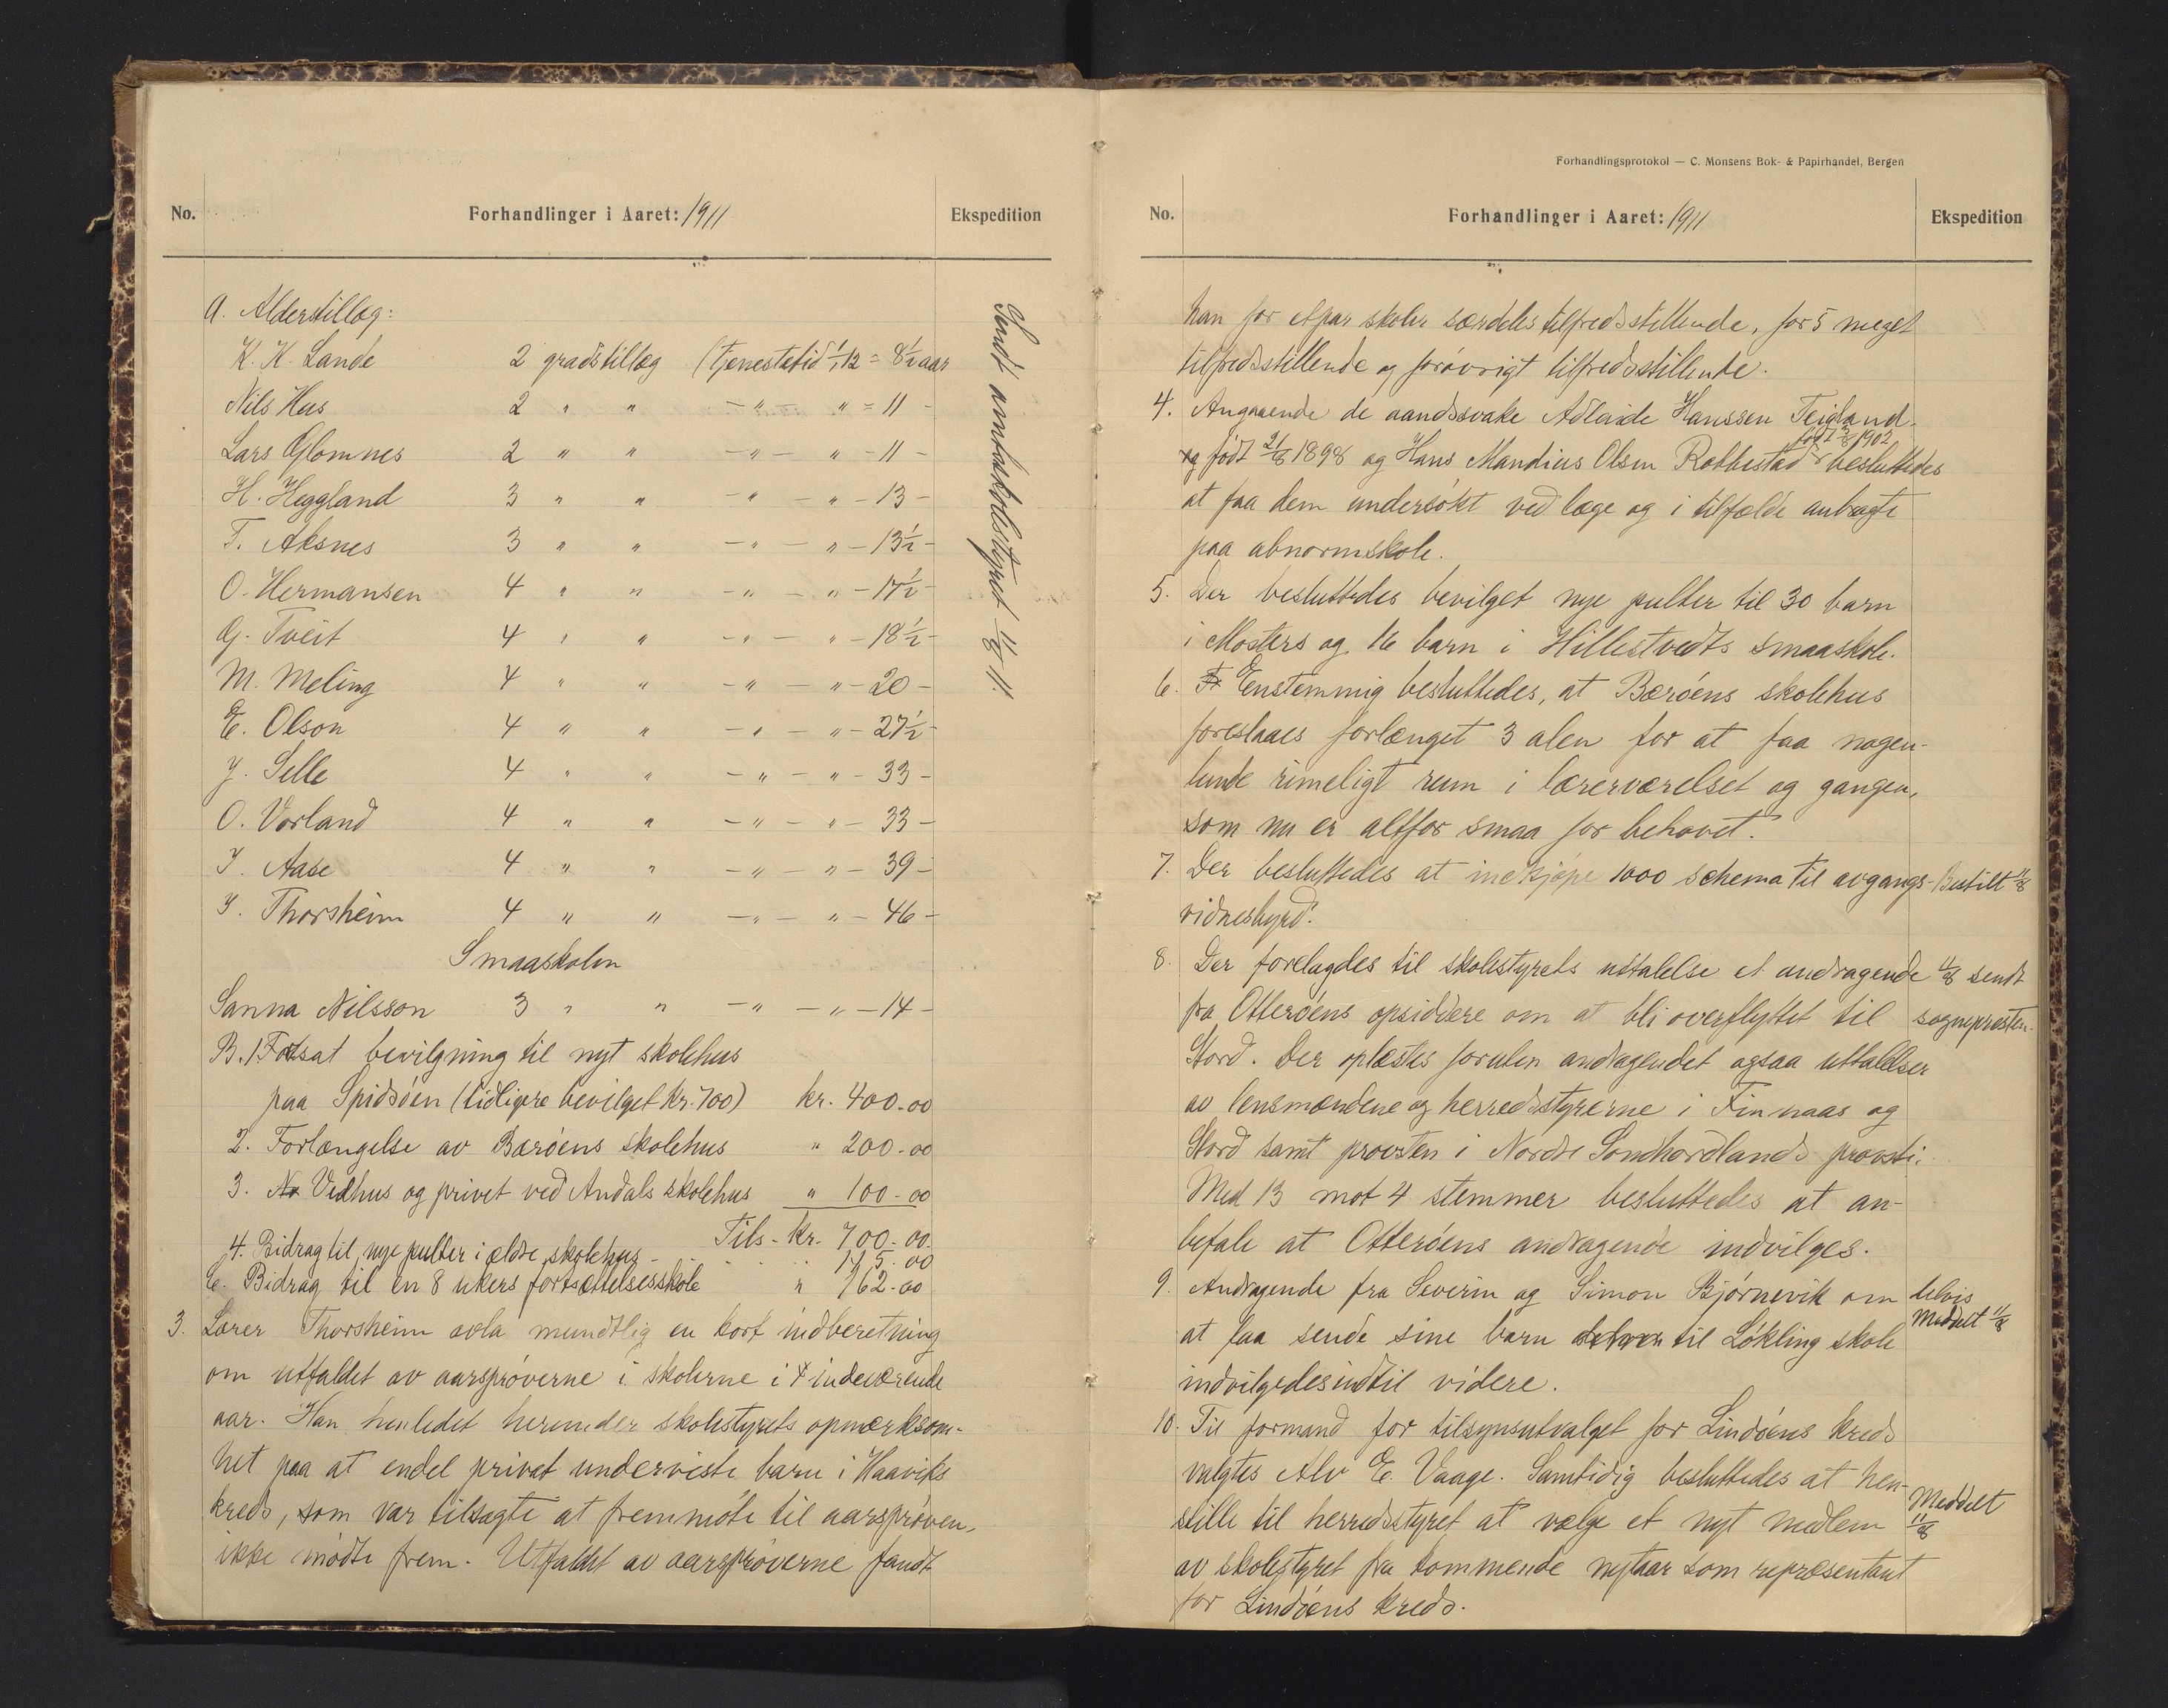 No. Forhandlinger i Aaret: 1911 Ekspedition
A. Alderstillæg:
K. K. Lande 2 gradstillæg (tjenestetid 1/1 12 = 8 1/2 aar
Nils Hus 2 " " -"- " = 11 -
Lars Glomnes 2 " " -"- " - 11 -
H. Heggland 3 " " -"- " - 13 -
T. Aksnes 3 " " -"- " - 13 1/2 -
O. Hermansen 4 " " -"- " - 17 1/2 -
G. Tveit 4 " " -"- " - 18 1/2 -
M. Meling 4 " " -"- " - 20 -
E. Olson 4 " " -"- " - 27 1/2 -
J. Selle 4 " " -"- " - 33 -
O. Vorland 4 " " -"- " - 33 -
I. Aase 4 " " -"- " - 39 -
I. Thorsheim 4 " " -"- " - 46 -
Smaaskolen
Sanna Nilsson 3 " " -"- " - 14 -
B. 1. Fortsat bevilgning til nyt skolehus
paa Spidsöen (tidligere bevilget kr. 700) kr. 400.00
2. Forlængelse av Bæröens skolehus " 200.00
3. Vedhus og privet ved Andals skolehus " 100.00
Tils. kr. 700.00
4. Bidrag til nye pulter i ældre skolehus - - - - 115.00
C. Bidrag til en 8 ukers fortsættelsesskole " 162.00
3. Lærer Thorsheim avla mundtlig en kort indberetning
om utfaldet av aarspröverne i skolerne i indeværende
aar. Han henledet herunder skolestyrets opmerksom-
het paa at endel privat underviste barn i Haaviks
kreds, som var tilsagte at fremmöte til aarspröven,
ikke mödte frem. Utfaldet av aarspröverne fandt
Sendt amtsskolestyret 11/8 11.
Forhandlingsprotokol — C. Monsens Bok- & Papirhandel, Bergen
No. Forhandlinger i Aaret: 1911 Ekspedition
han for et par skoler særdeles tilfredsstillende, for 5 meget
tilfredsstillende og forövrigt tilfredsstillende.
4. Angaaende de aandssvake Adleide Hanssen Teigland
födt 21/8 1898 og Hans Mandius Olsen Robbestad födt 1902 besluttedes
at faa dem undersökt ved læge og i tilfælde anbragte
paa abnormskole.
5. Der besluttedes bevilget nye pulter til 30 barn
i Mosters og 16 barn i Hillestvedts smaaskole.
6. Enstemmig besluttedes, at Bæröens skolehus
foreslaaes forlænget 3 alen for at faa nogen-
lunde rimeligt rum i lærerværelset og gangen,
som nu er altfor smaa for behovet.
7. Der besluttedes at indkjöpe 1000 schema til avgangs- Bestilt 11/8
vidnesbyrd.
8. Der forelagdes til skolestyrets uttalelse et andragende 11/8 sendt
fra Otteröens opsiddere om at bli overflyttet til sognepresten.
Stord. Der oplæstes foruten andragendet ogsaa uttalelser
av lensmændene og herredsstyrerne i Finnaas og
Stord samt provsten i Nordre Söndhordlands provsti.
Med 13 mot 4 stemmer besluttedes at an-
befale at Otteröens andragende indvilges.
9. Andragende fra Severin og Simon Björnevik om delvis
at faa sende sine barn til Lökling skole Meddelt 11/8
indvilgedes indtil videre.
10. Til formand for tilsynsutvalget for Lindöens kreds
valgtes Alv E. Vaage. Samtidig besluttedes at hen-
stille til herredsstyret at vælge et nyt medlem Meddelt 11/8
av skolestyret fra kommende nytaar som repræsentant
for Lindöens kreds.